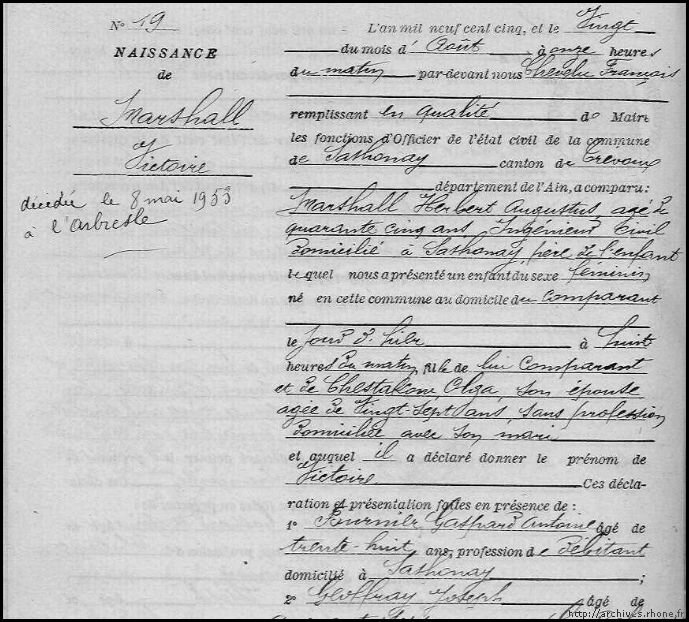 N° 19
NAISSANCE
de
Marshall
Victoire
décédée le 8 mai 1953
à l'Arbresle
L'an mil neuf cent cinq, et le Vingt
du mois d' Août à onze heures
du matin par-devant nous Chevelu François
remplissant en qualité de Maire
les fonctions d'Officier de l'état civil de la commune
de Sathonay canton de Trevoux
département de l'Ain, a comparu:
Marshall Herbert Augustus, agé de
quarante cinq ans, Ingénieur Civil
domicilié à Sathonay, père de l'enfant
lequel nous a présenté un enfant du sexe féminin
né en cette commune au domicile du comparant
le jour d'hier à huit
heures du matin, fille de lui comparant
et de Chestakow, Olga, son épouse
agée de Vingt-Sept ans, sans profession
domiciliée avec son mari
et auquel il a déclaré donner le prénom de
Victoire Ces décla-
ration et présentation faites en présence de:
1° Fournier Gaspard Antoine âgé de
trente-huit ans, profession de Débitant
domicilié à Sathonay ;
2° Geoffray Joseph âgé de
http://archives.rhone.fr